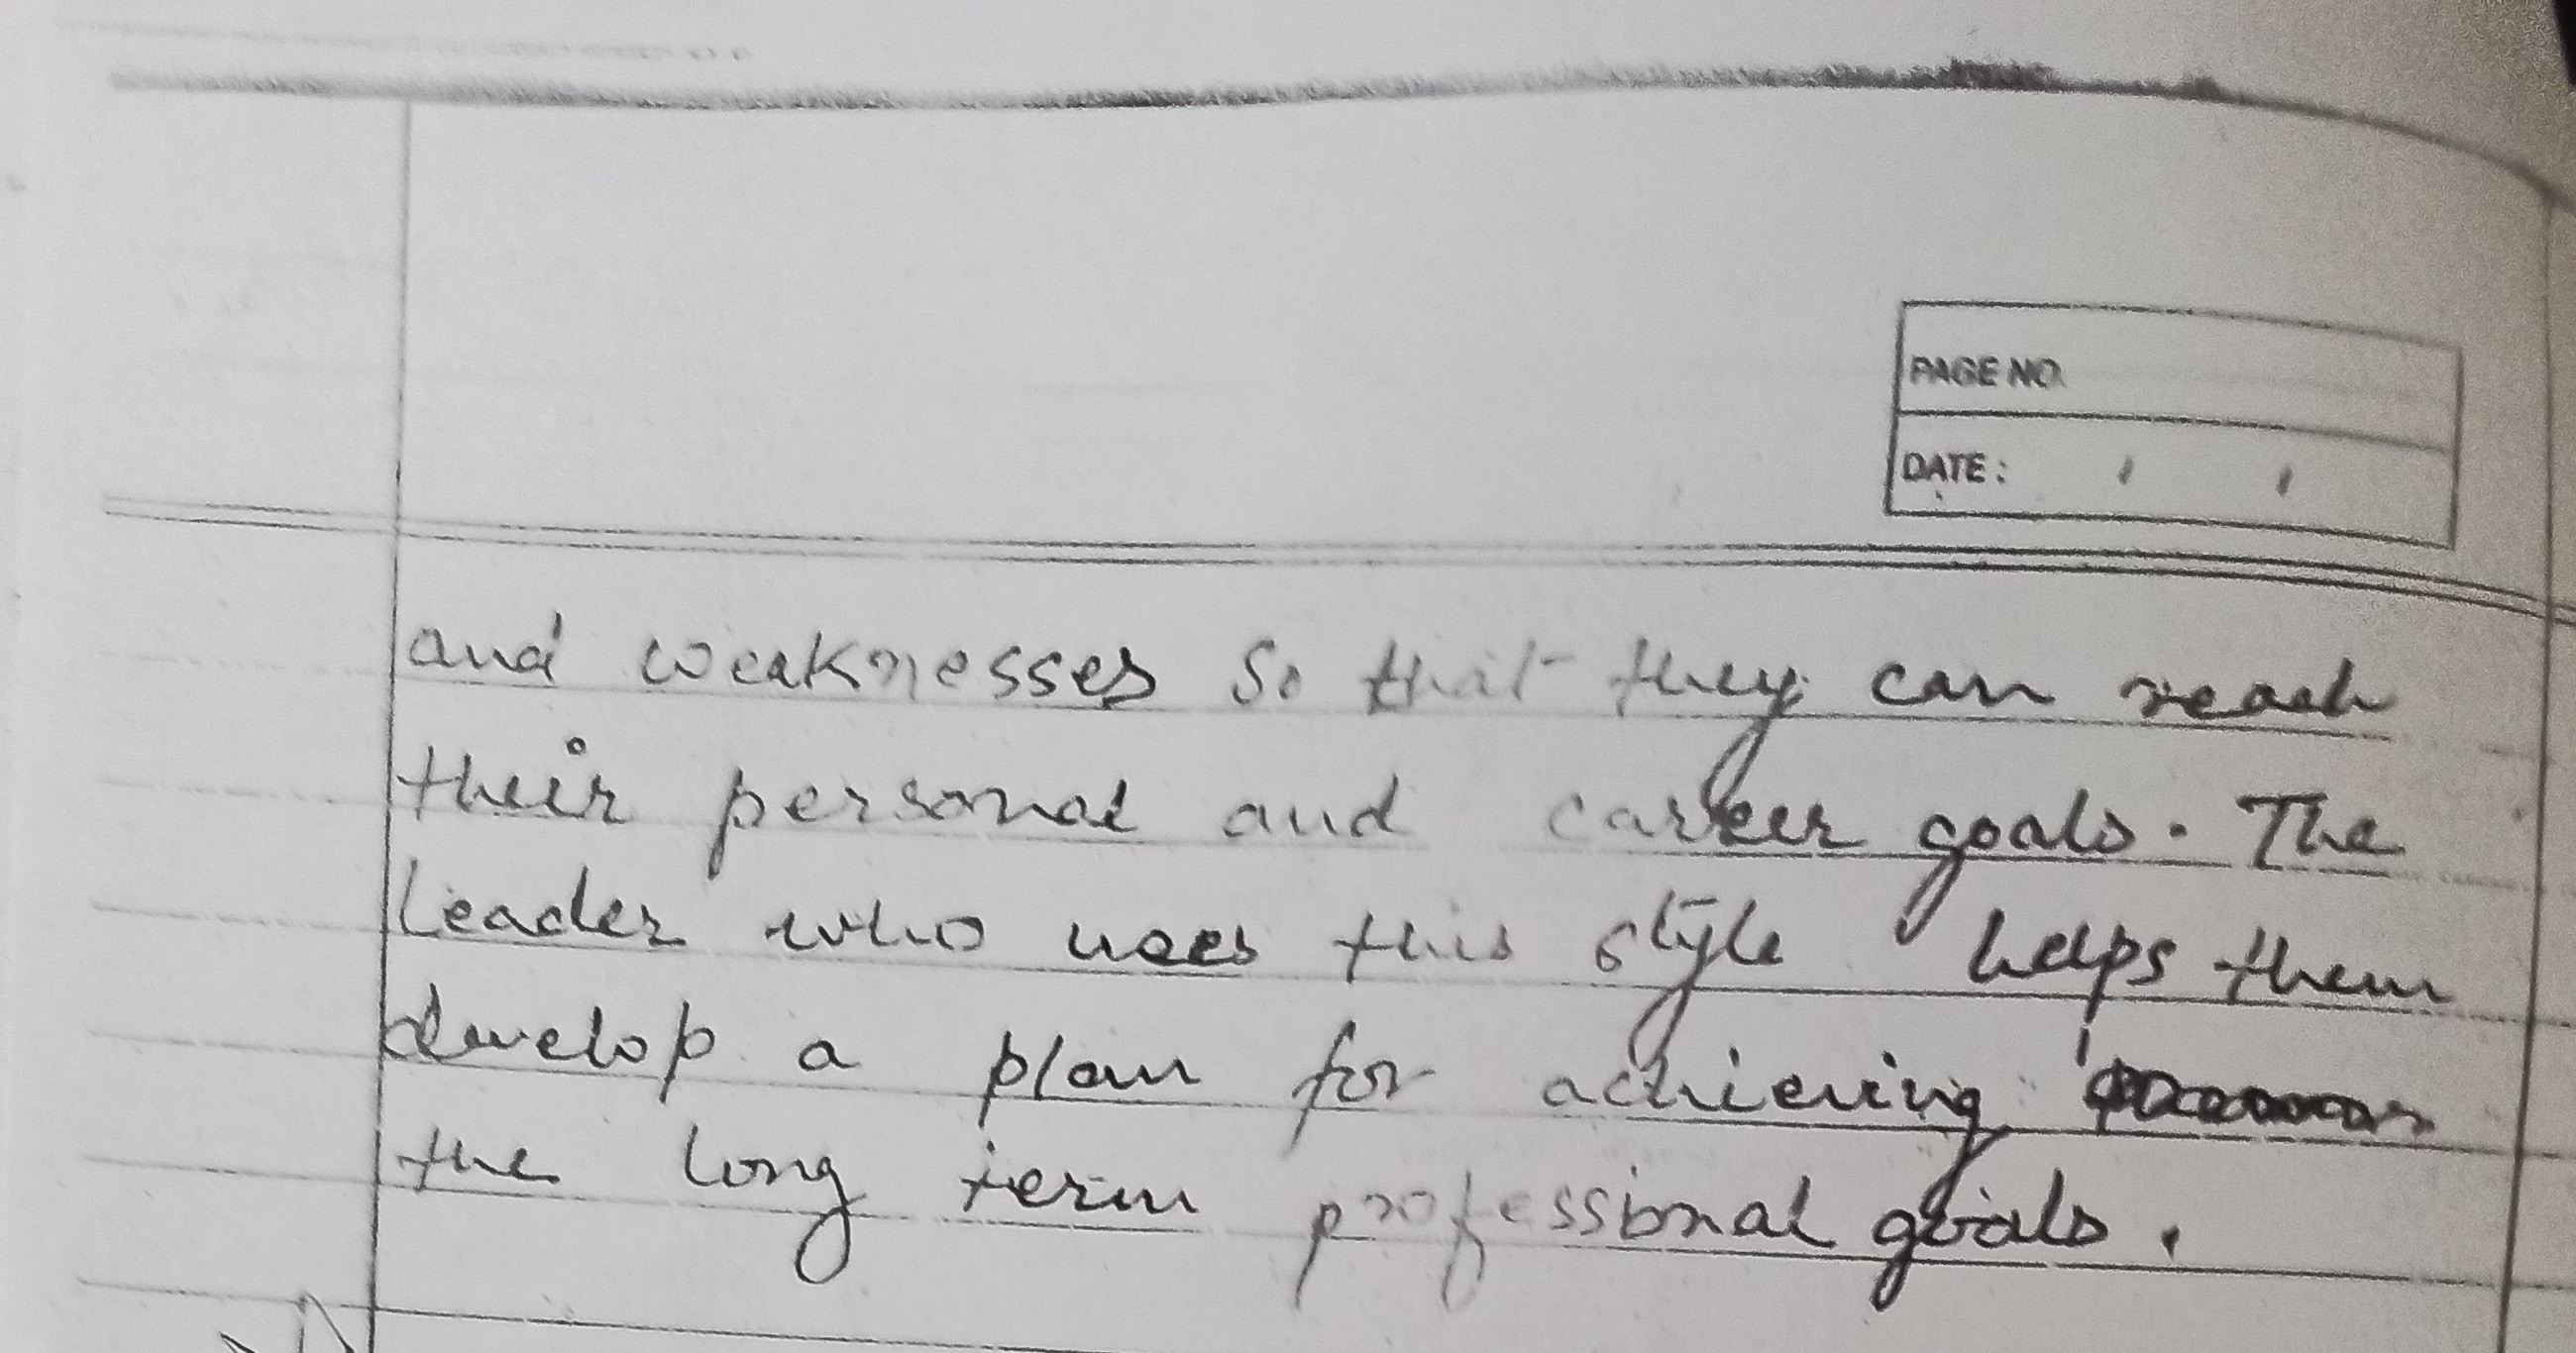 PAGE NO.
DATE : / /
and weaknesses so that they can reach
their personal and career goals. The
Leader who uses this style helps them
develop a plan for achieving
the long term professional goals.